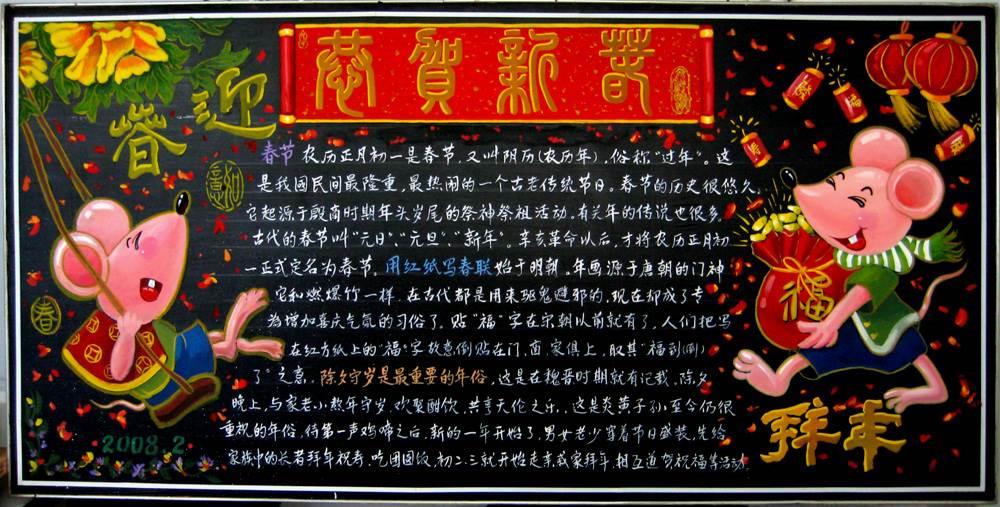 恭贺新春
迎
春
春节 农历正月初一是春节，又叫阴历(农历年)，俗称"过年"。这
是我国民间最隆重，最热闹的一个古老传统节日。春节的历史很悠久，
它起源于殷商时期年头岁尾的祭神祭祖活动。有关年的传说也很多。
古代的春节叫"元日"、"元旦"、"新年"。辛亥革命以后，才将农历正月初
一正式定名为春节。用红纸写春联始于明朝。年画源于唐朝的门神
它和燃爆竹一样，在古代都是用来驱鬼避邪的，现在却成了专
为增加喜庆气氛的习俗了。贴"福"字在宋朝以前就有了，人们把写
在红方纸上的"福"字故意倒贴在门，窗，家俱上，取其"福到(倒)
了"之意，除夕守岁是最重要的年俗，这是在魏晋时期就有记载，除夕
晚上，与家老小熬年守岁，欢聚酣饮，共享天伦之乐，这是炎黄子孙至今仍很
重视的年俗，待第一声鸡啼之后，新的一年开始了，男女老少穿着节日盛装，先给
家族中的长者拜年祝寿，吃团圆饭，初二、三就开始走亲戚家拜年，相互道贺祝福等活动。
春
福
拜年
2008.2